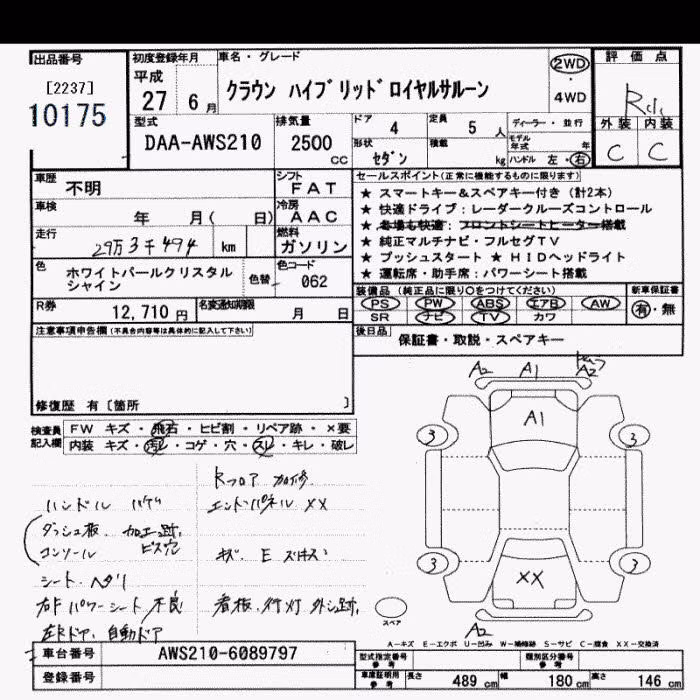 出品番号
[2237]
10175
初度登録年月
平成
27年 6月
車名・グレード
クラウン ハイブリッドロイヤルサルーン
2WD
4WD
評価点
外装 内装
C C
型式
DAA-AWS210
排気量
2500
CC
ドア
4
定員
5 人
形状
セダン
積載
kg
ディーラー・並行
モデル年式 年
ハンドル 左・右
車歴
不明
シフト
FAT
車検
年 月( 日)
冷房
AAC
走行
29万3千494 km
燃料
ガソリン
色
ホワイトパールクリスタル
シャイン
色替
色コード
062
R券
12,710円
名変通知期限
月 日
セールスポイント(正常に機能するものに限ります)
★ スマートキー&スペアキー付き(計2本)
★ 快適ドライブ:レーダークルーズコントロール
★ 冬場も快適:フロントシートヒーター搭載
★ 純正マルチナビ・フルセグTV
★ プッシュスタート ★ HIDヘッドライト
★ 運転席・助手席:パワーシート搭載
装備品(純正品に限り○をつけてください)
PS PW ABS エアB AW
SR ナビ TV カワ
新車保証書
有・無
後日品
保証書・取説・スペアキー
注意事項申告欄(不具合内容等は具体的に記入して下さい)
修復歴 有〔箇所 〕
検査員記入欄
FW キズ・飛石・ヒビ割・リペア跡・×要
内装 キズ・汚レ・コゲ・穴・スレ・キレ・破レ
Rフロア 加修
ハンドル ハゲ
エンドパネル XX
ダッシュ板、加工跡、
コンソール ビス穴
キズ、E
シート、ヘタリ
右F パワーシート 不良
看板、行灯 外し跡、
左Rドア、自動ドア
A2 A1 A2
A1
3 3
3 3
XX
A2
スペア
A-キズ E-エクボ U-凹み W-補修跡 S-サビ C-腐食 XX-交換済
車台番号
AWS210-6089797
登録番号
型式指定番号
参考
類別区分番号
参考
車庫証明用
参考
長さ 489 cm 幅 180 cm 高さ 146 cm